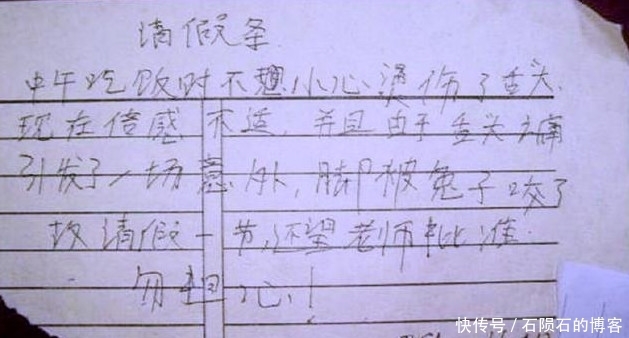 请假条
中午吃饭时不想小心烫伤了舌头
现在倍感不适,并且由于舌头痛
引发了一场意外,脚被兔子咬了
故请假一节,还望老师批准.
勿担心!
快传号/石陨石的博客